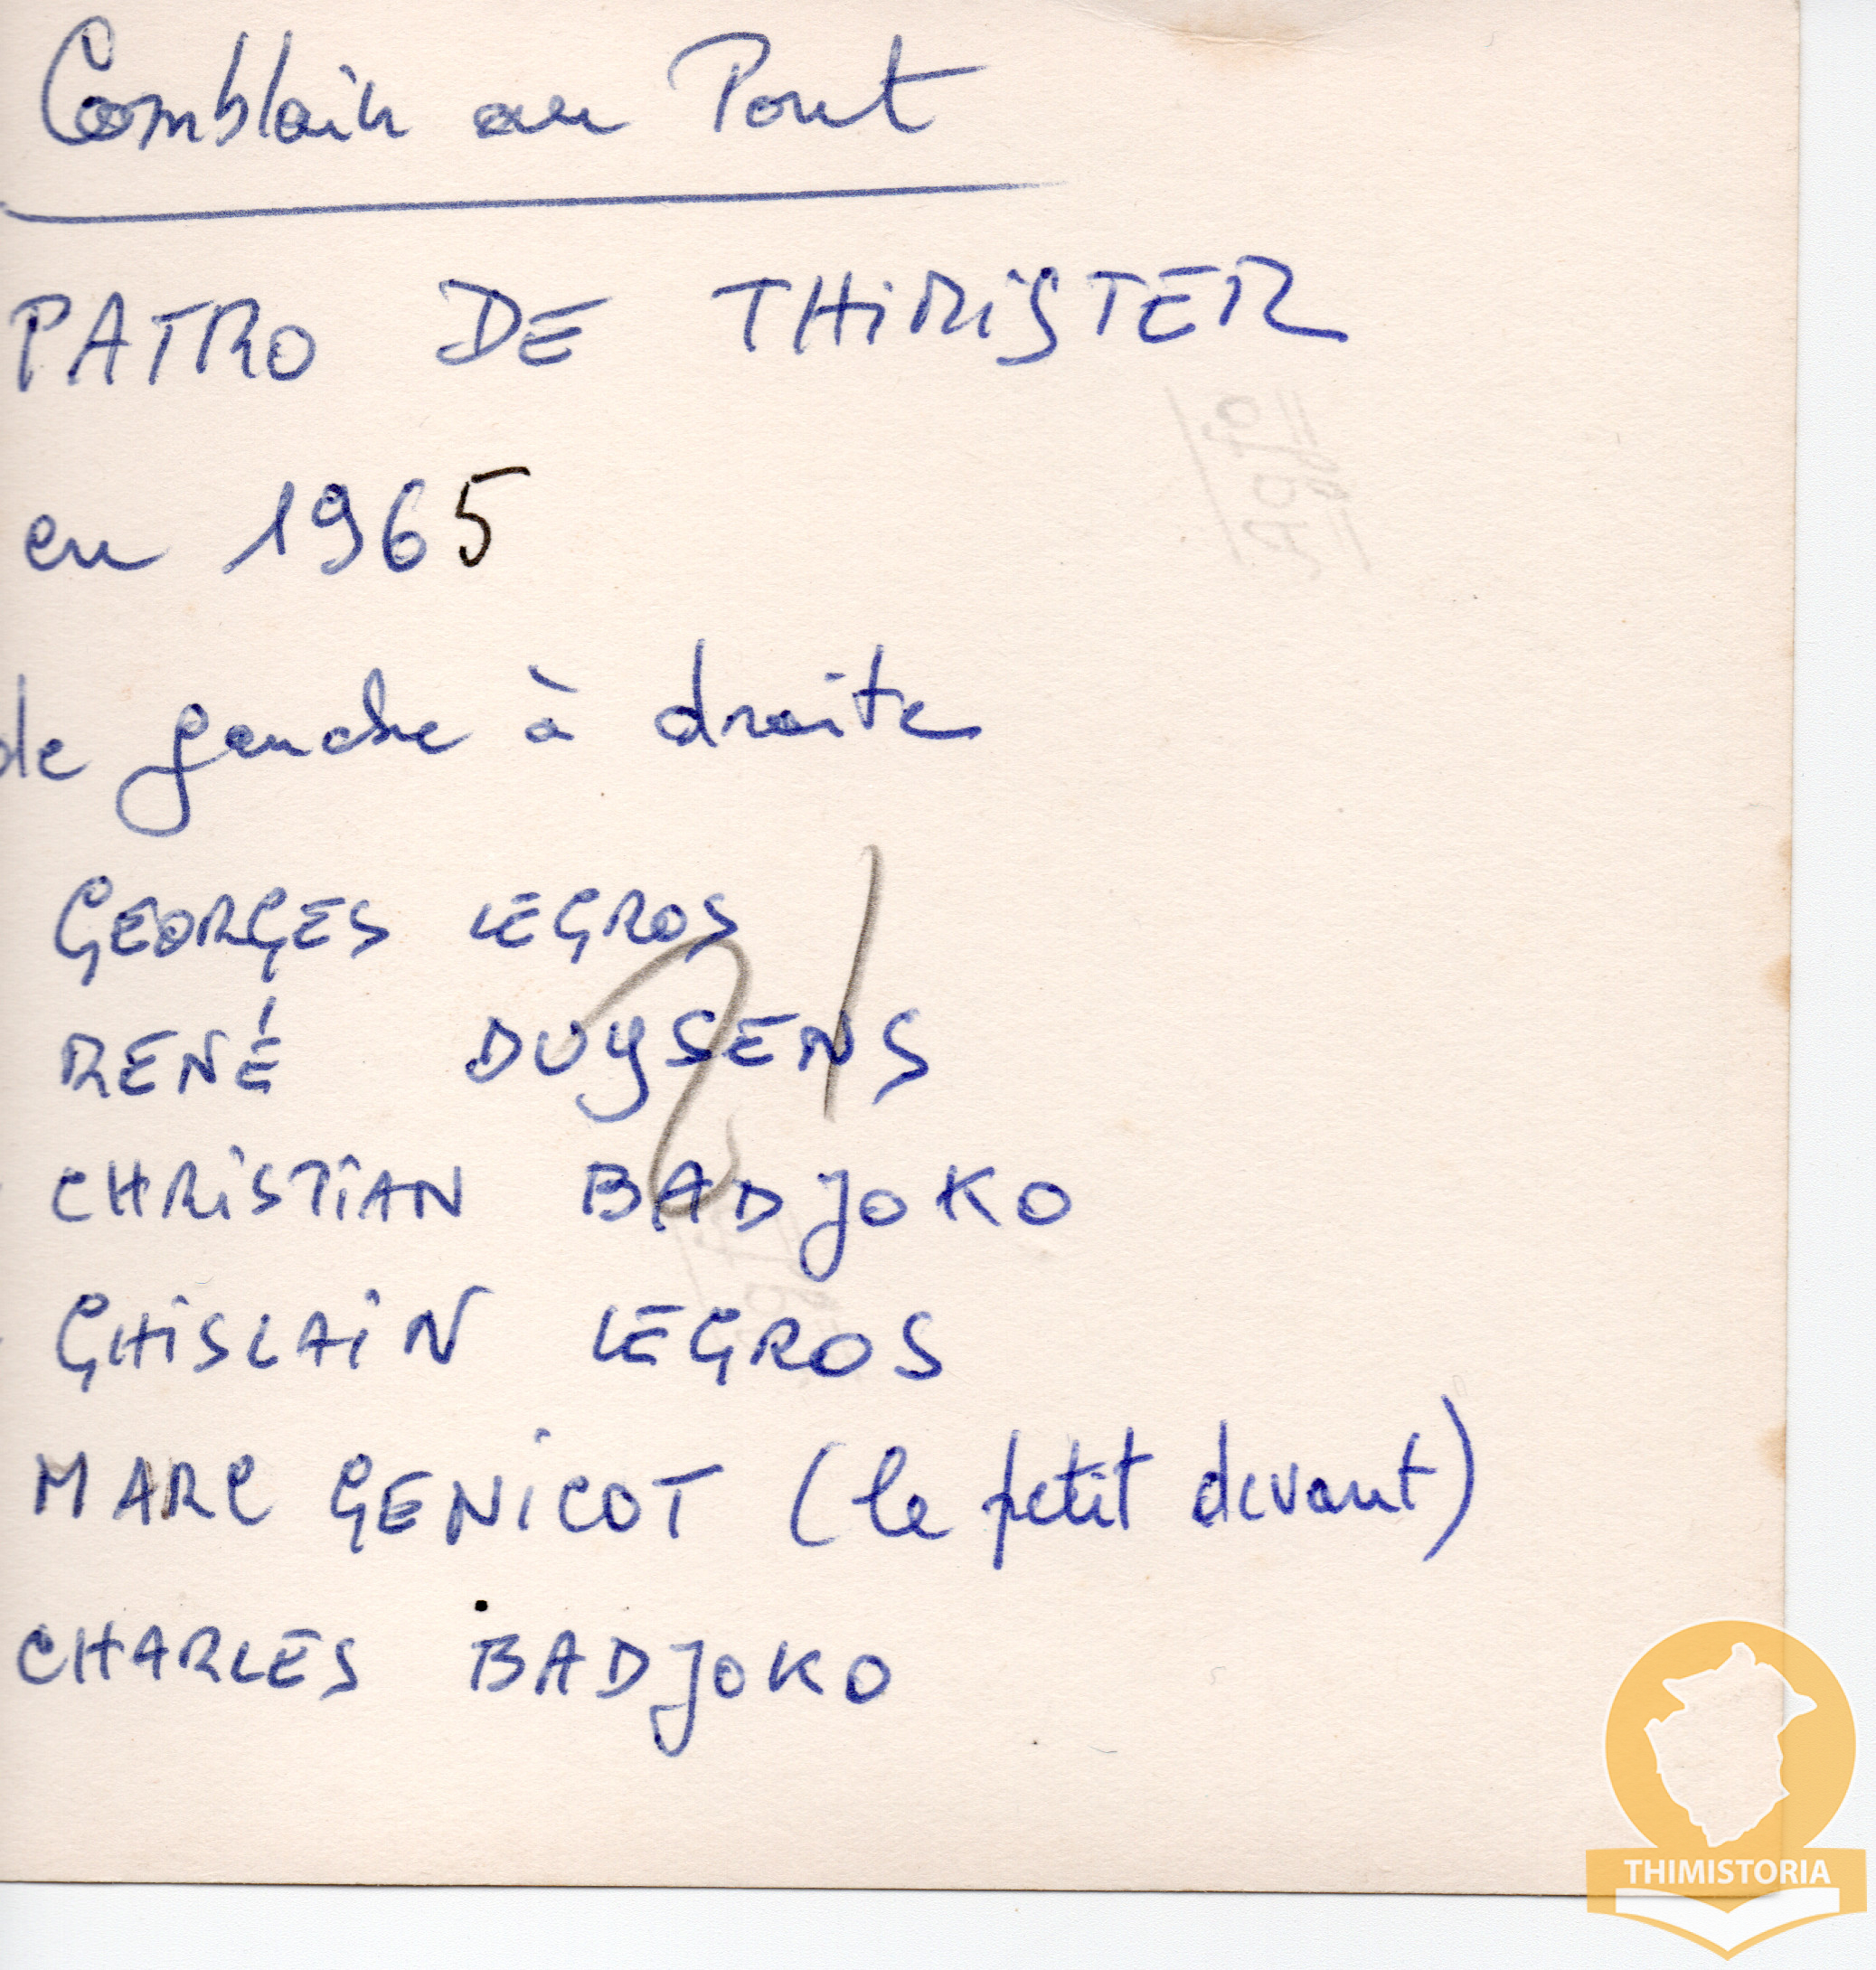 Comblain au Pont
PATRO DE THIRISTER
en 1965
de gauche à droite
GEORGES LEGROS
RENÉ DUYSENS
CHRISTIAN BADJOKO
GHISLAIN LEGROS
MARC GENICOT (le petit devant)
CHARLES BADJOKO
THIMISTORIA